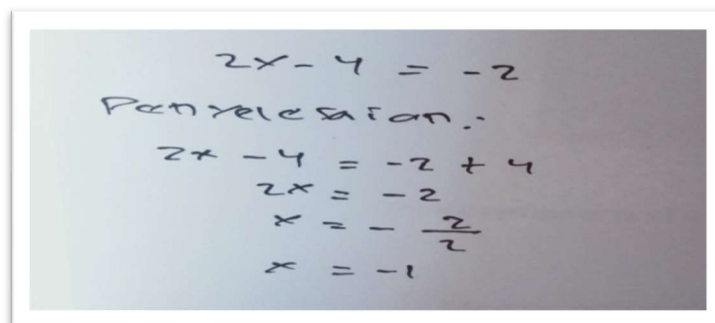 2x - 4 = -2
Penyelesaian :
2x - 4 = -2 + 4
2x = -2
x = - 2/2
x = -1